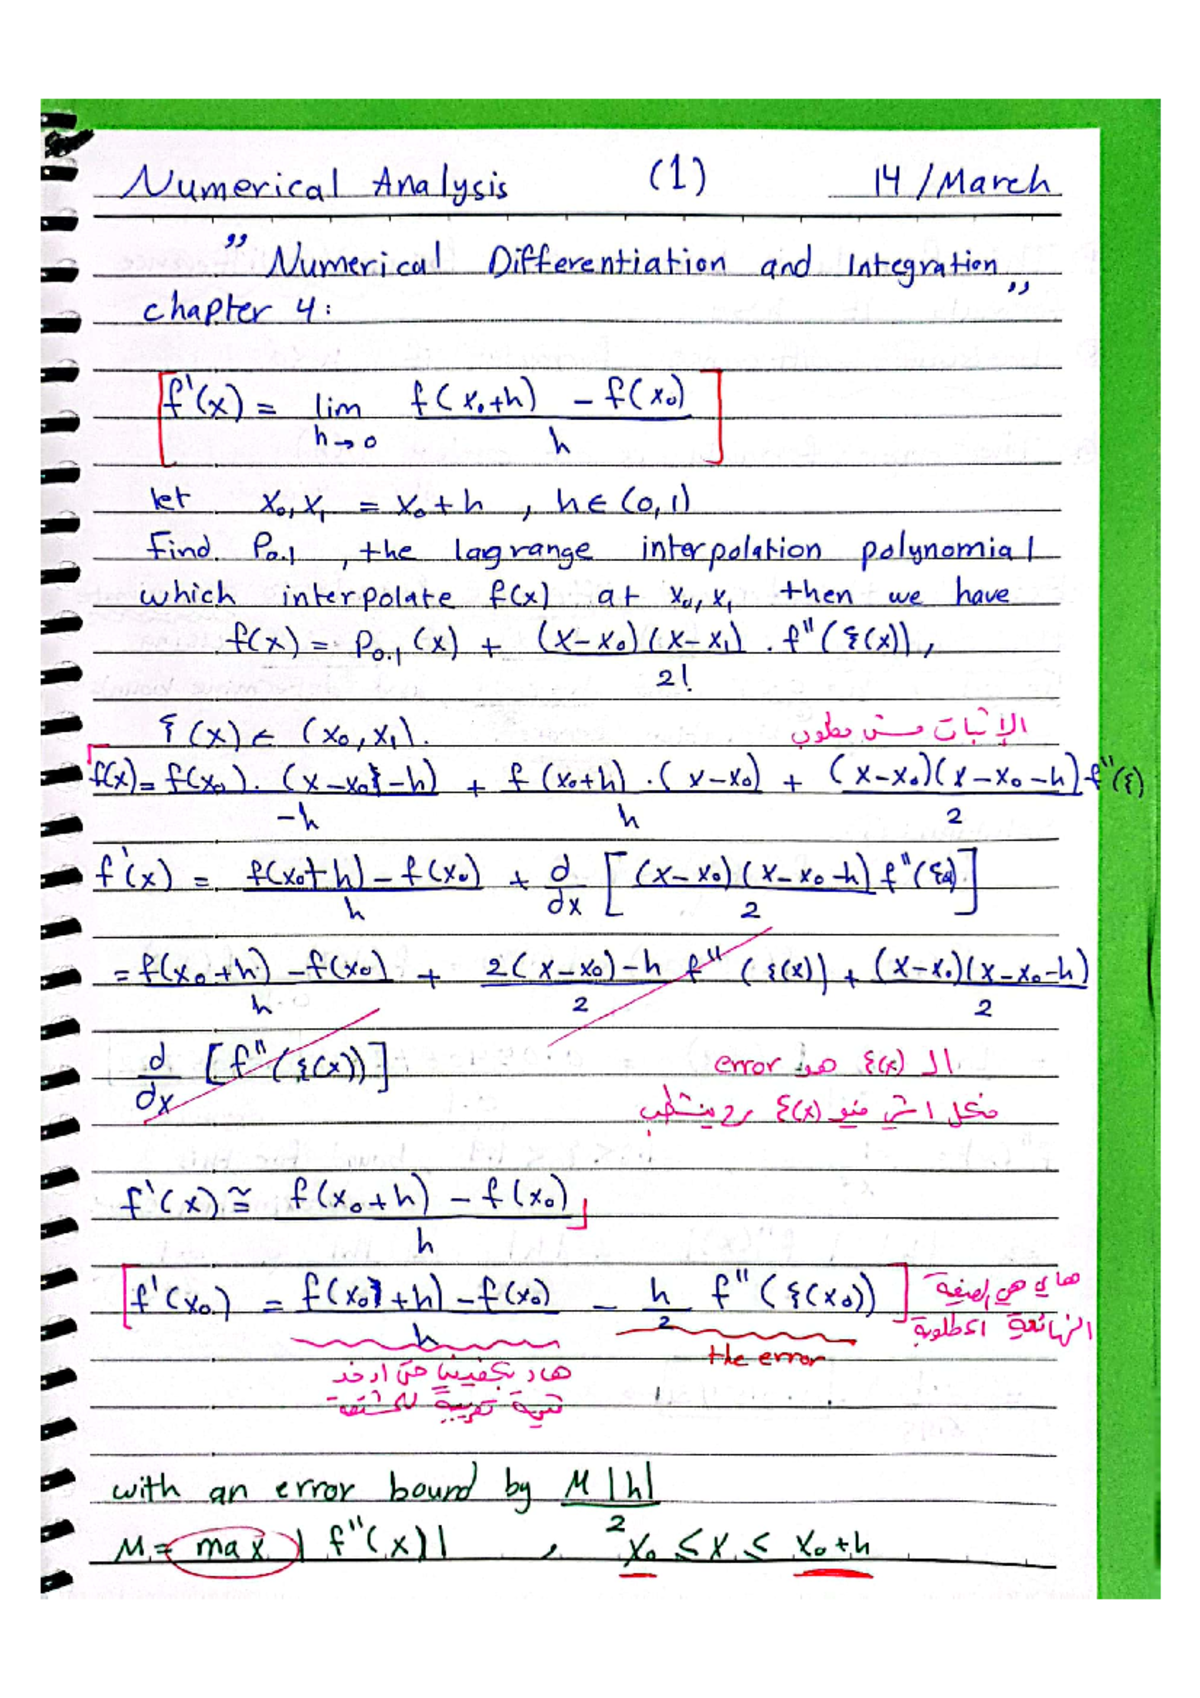 Numerical Analysis (1) 14/March
"Numerical Differentiation and Integration"
chapter 4:
f'(x) = lim h→0 f(x₀+h) - f(x₀) / h
let x₀, x₁ = x₀+h , h ∈ (0,1)
Find P₀.₁ , the lagrange interpolation polynomial
which interpolate f(x) at x₀, x₁ then we have
f(x) = P₀.₁(x) + (x-x₀)(x-x₁) / 2! . f''(ξ(x)),
ξ(x) ∈ (x₀, x₁).
الإثبات مش مطلوب
f(x) = f(x₀) . (x-x₀-h) / -h + f(x₀+h) . (x-x₀) / h + (x-x₀)(x-x₀-h) / 2 f''(ξ)
f'(x) = f(x₀+h) - f(x₀) / h + d/dx [ (x-x₀)(x-x₀-h) f''(ξ) / 2 ]
= f(x₀+h) - f(x₀) / h + 2(x-x₀)-h / 2 f''(ξ(x)) + (x-x₀)(x-x₀-h) / 2
d/dx [f''(ξ(x))]
الـ ξ(x) هو error
فكل اشي فيو ξ(x) رح ينشطب
f'(x) ≅ f(x₀+h) - f(x₀) / h
f'(x₀) = f(x₀+h) - f(x₀) / h - h/2 f''(ξ(x₀))
هاي هي الصيغة
النهائية المطلوبة
the error
هاد بكفينا حتى اوخد
قيمة تقريبية للمشتقة
with an error bound by M|h| / 2
M = max |f''(x)| , x₀ ≤ x ≤ x₀+h